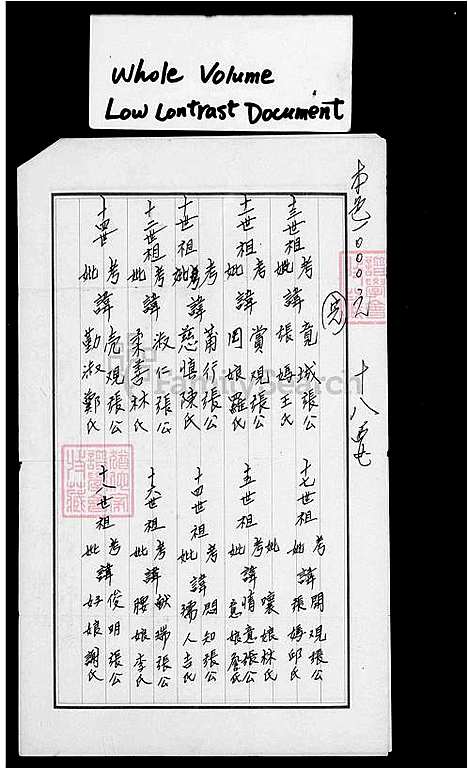 Whole Volume
Low Contrast Document
十八世
考 竟城張公
十三世祖 諱
妣 張媽王氏
考 賞观張公
十二世祖 諱
妣 罔娘羅氏
考 莆行張公
十世祖 諱
妣 慈慎陳氏
考 淑仁張公
十二世祖 諱
妣 柔季林氏
考 亮观張公
十四世 諱
妣 勤淑鄭氏
考 開观張公
十七世祖 諱
妣 張媽邱氏
妣 嚷娘林氏
考 情意張公
十五世祖 諱
妣 意娘詹氏
考 悶知張公
十四世祖 諱
妣 孺人吉氏
考 献瑞張公
十六世祖 諱
妣 腰娘李氏
考 俊明張公
十八世祖 諱
妣 好娘謝氏
FamilySearch